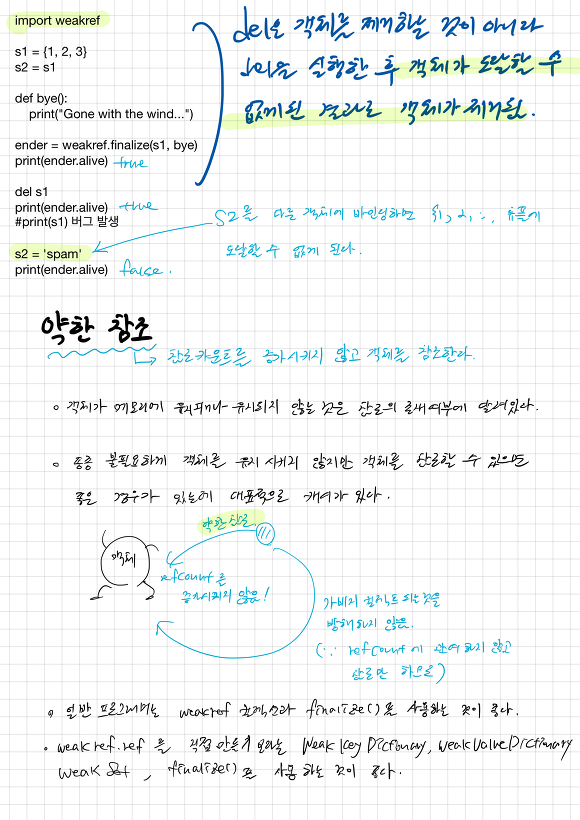 import weakref
del은 객체를 제거하는 것이 아니라
s1 = {1, 2, 3}
s2 = s1
del을 실행한 후 객체가 도달할 수
def bye():
print("Gone with the wind...")
없게된 결과로 객체가 제거됨.
ender = weakref.finalize(s1, bye)
print(ender.alive) true
del s1
print(ender.alive) true
#print(s1) 버그 발생
S2를 다른 객체에 바인딩하면 {1, 2, 튜플에
도달할 수 없게 된다.
s2 = 'spam'
print(ender.alive) false.
약한 참조
참조카운트를 증가시키지 않고 객체를 참조한다.
객체가 메모리에 유지되거나 유지되지 않는 것은 참조의 존재여부에 달려있다.
종종 불필요하게 객체를 유지 시키지 않지만 객체를 참조할 수 있으면
좋은 경우가 있는데 대표적으로 캐시가 있다.
약한 참조
객체
refcount를
증가시키지 않음!
가비지 컬렉트 되는것을
방해하지 않음.
(∵ refcount에 관여하지 않고
참조만 하므로)
일반 프로그래머는 weakref 컬렉션과 finalize()를 사용하는 것이 좋다.
weakref.ref 를 직접 만들기 보다는 WeakKeyDictionary, WeakValueDictionary
WeakSet, finalize()를 사용 하는 것이 좋다.